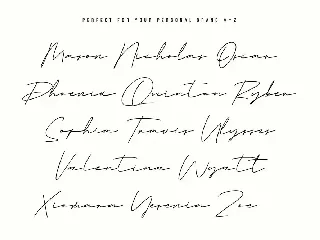 PERFECT FOR YOUR PERSONAL BRAND A-Z
Mason Nicholas Oscar
Phoenix Quinton Ryber
Sophia Travis Ulysses
Valentina Wyatt
Xiomara Yesenia Zoe